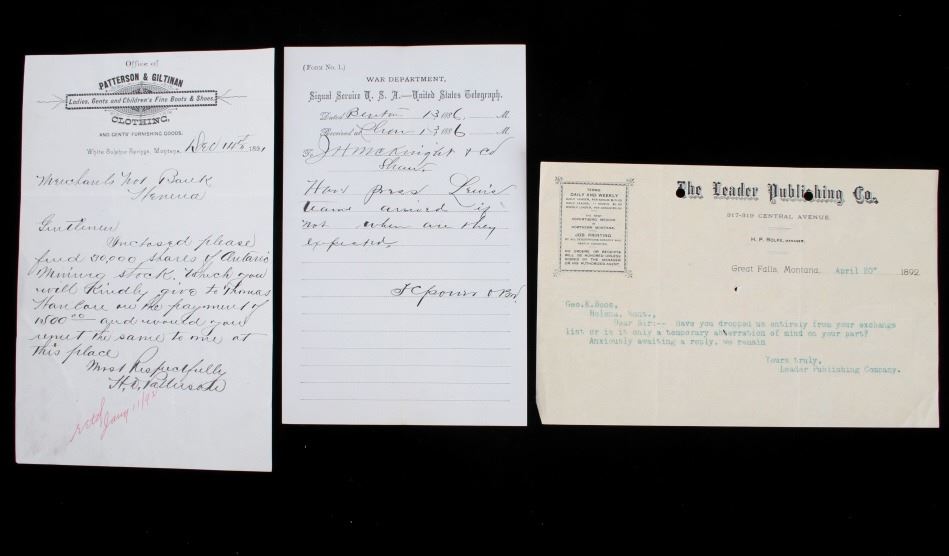 Office of
PATTERSON & GILTINAN
Ladies, Gents and Children's Fine Boots & Shoes,
CLOTHING,
AND GENTS' FURNISHING GOODS.
White Sulphur Springs, Montana, Dec 14th 1891
Merchants Nat Bank
Helena
Gentlemen
Inclosed please
find 30,000 shares of Ontario
Mining stock. Which you
will kindly give to Thomas
Hanlon on the payment of
and would you
remit the same to me at
this place
Most Respectfully
Patterson
Jany 11/92
(Form No. 1.)
WAR DEPARTMENT,
Signal Service U. S. A.—United States Telegraph.
Dated Benton 1-3 1886, M.
Received at Shaw 1-3 1886 M.
To J H McKnight & Co
Shaw.
Have Lewis
teams arrived if
not when are they
expected.
T C Power & Bro
TERMS
DAILY AND WEEKLY
JOB PRINTING
NO ORDERS OR RECEIPTS
WILL BE HONORED UNLESS
SIGNED BY THE MANAGER
OR HIS AUTHORIZED AGENT.
The Leader Publishing Co.
317-319 CENTRAL AVENUE.
H. P. ROLFE, MANAGER.
Great Falls, Montana, April 20" 1892.
Geo.K.Boos,
Helena, Mont.,
Dear Sir:-- Have you dropped us entirely from your exchange
list or is it only a temporary aberration of mind on your part?
Anxiously awaiting a reply, we remain
Yours truly,
Leader Publishing Company.